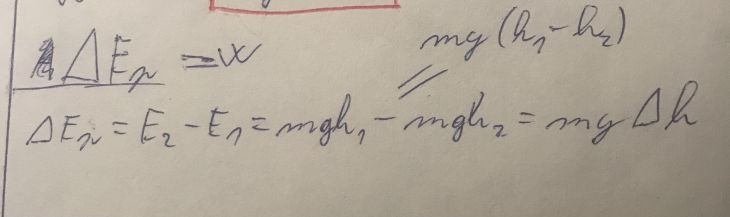 ΔEₚ = W
mg(h₁-h₂)
ΔEₚ = E₂ - E₁ = mgh₁ - mgh₂ = mgΔh